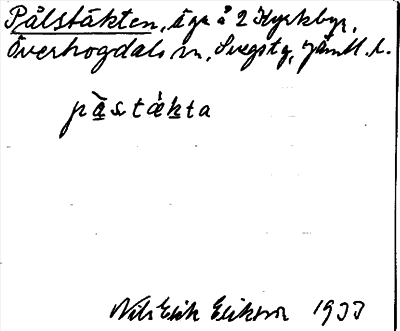 Pålstäkten, äga å 2 Kyrkbyn,
Överhogdals sn, Svegs tg, Jämtl. l.
pàstǽkta
Nils Erik Eliktson 1933